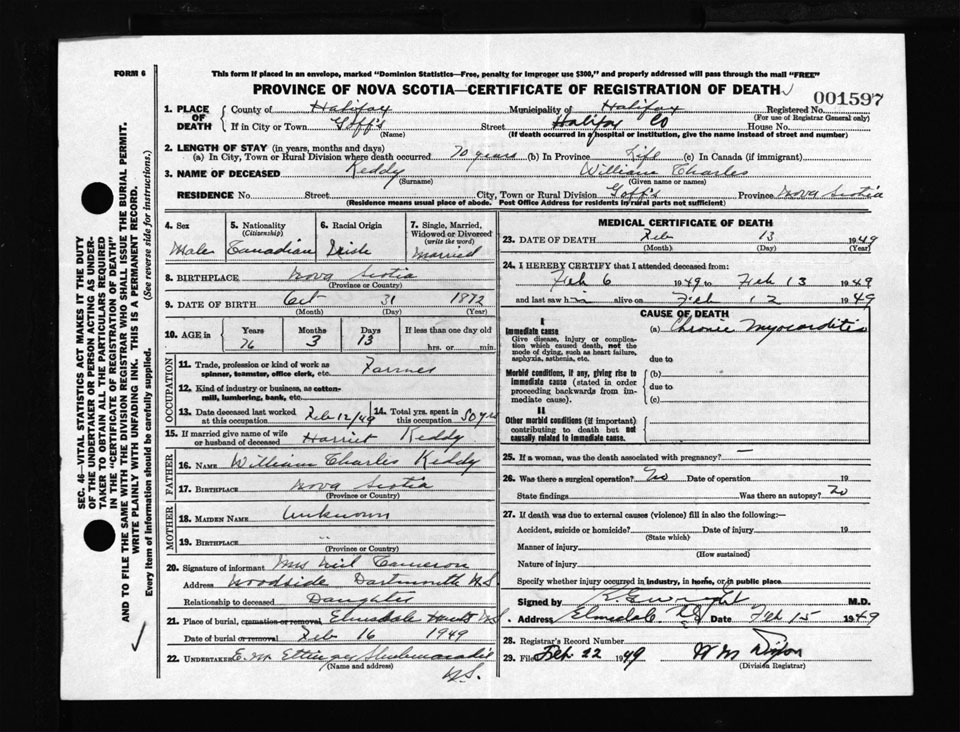 FORM 6
This form if placed in an envelope, marked "Dominion Statistics—Free, penalty for improper use $300," and properly addressed will pass through the mail "FREE"
PROVINCE OF NOVA SCOTIA—CERTIFICATE OF REGISTRATION OF DEATH
001597
1. PLACE OF DEATH County of Halifax Municipality of Halifax Registered No.
(For use of Registrar General only)
If in City or Town Goff's Street Halifax Co House No.
(Name) (If death occurred in a hospital or institution, give the name instead of street and number)
2. LENGTH OF STAY (in years, months and days)
(a) In City, Town or Rural Division where death occurred 70 years (b) In Province Life (c) In Canada (if immigrant)
3. NAME OF DECEASED Keddy William Charles
(Surname) (Given name or names)
RESIDENCE No. Street City, Town or Rural Division Goff's Province Nova Scotia
(Residence means usual place of abode. Post Office Address for residents by rural parts not sufficient)
4. Sex Male
5. Nationality (Citizenship) Canadian
6. Racial Origin Irish
7. Single, Married, Widowed or Divorced (write the word) Married
8. BIRTHPLACE Nova Scotia
(Province or Country)
9. DATE OF BIRTH Oct 31 1872
(Month) (Day) (Year)
10. AGE in Years 76 Months 3 Days 13 If less than one day old
hrs. or min.
OCCUPATION
11. Trade, profession or kind of work as spinner, teamster, office clerk, etc. Farmer
12. Kind of industry or business, as cotton-mill, lumbering, bank, etc.
13. Date deceased last worked at this occupation Feb 12/49
14. Total yrs. spent in this occupation 50 yrs
15. If married give name of wife or husband of deceased Harriet Keddy
FATHER
16. NAME William Charles Keddy
17. BIRTHPLACE Nova Scotia
(Province or Country)
MOTHER
18. MAIDEN NAME Unknown
19. BIRTHPLACE "
(Province or Country)
20. Signature of informant Mrs Neil Cameron
Address Woodside Dartmouth N.S
Relationship to deceased Daughter
21. Place of burial, cremation or removal, Elmsdale Hants N.S
Date of burial or removal Feb 16 1949
22. UNDERTAKER E.M. Ettinger Shubenacadie
(Name and address)
N.S.
MEDICAL CERTIFICATE OF DEATH
23. DATE OF DEATH Feb 13 1949
(Month) (Day) (Year)
24. I HEREBY CERTIFY that I attended deceased from:
Feb 6 1949 to Feb 13 1949
and last saw him alive on Feb 12 1949
CAUSE OF DEATH
I
Immediate cause (a) Chronic Myocarditis
Give disease, injury or complication which caused death, not the mode of dying, such as heart failure, asphyxia, asthenia, etc. due to
Morbid conditions, if any, giving rise to immediate cause (stated in order proceeding backwards from immediate cause). (b)
due to
(c)
II
Other morbid conditions (if important) contributing to death but not causally related to immediate cause.
25. If a woman, was the death associated with pregnancy? —
26. Was there a surgical operation? No Date of operation 19
State findings Was there an autopsy? No
27. If death was due to external causes (violence) fill in also the following:—
Accident, suicide or homicide? Date of injury 19
(State which)
Manner of injury
(How sustained)
Nature of injury
Specify whether injury occurred in industry, in home, or in public place
Signed by M.D.
Address Elmsdale N.S. Date Feb 15 1949
28. Registrar's Record Number
29. File Feb 22 1949 W M Dixon
(Division Registrar)
SEC. 46—VITAL STATISTICS ACT MAKES IT THE DUTY
OF THE UNDERTAKER OR PERSON ACTING AS UNDER-
TAKER TO OBTAIN ALL THE PARTICULARS REQUIRED
IN THE "CERTIFICATE OF REGISTRATION OF DEATH"
AND TO FILE THE SAME WITH THE DIVISION REGISTRAR WHO SHALL ISSUE THE BURIAL PERMIT.
WRITE PLAINLY WITH UNFADING INK. THIS IS A PERMANENT RECORD.
Every item of information should be carefully supplied. (See reverse side for instructions.)